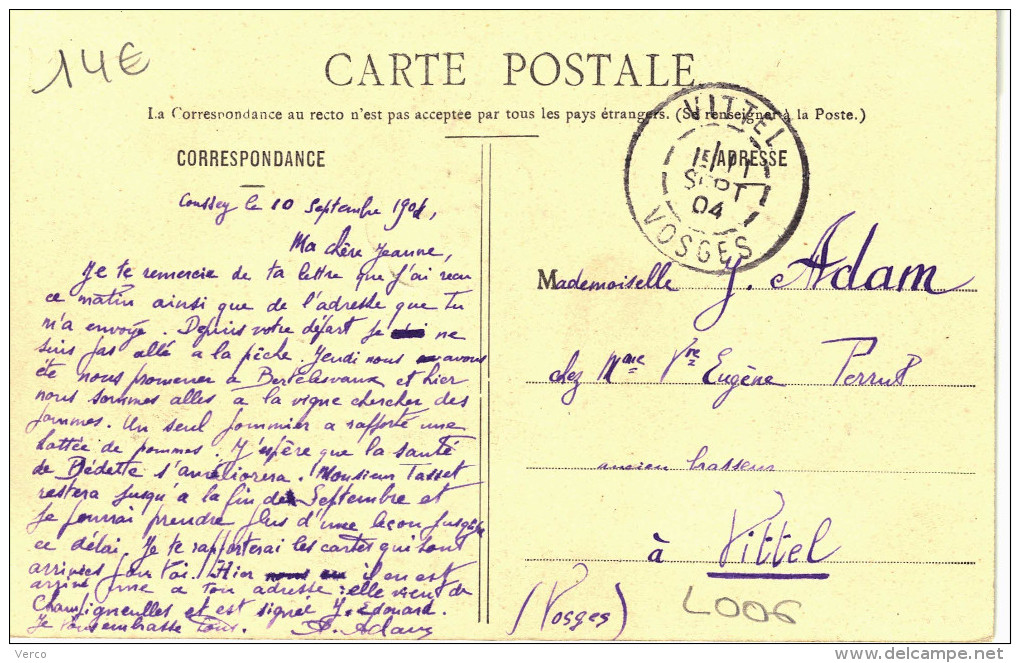 14€
CARTE POSTALE
La Correspondance au recto n'est pas acceptée par tous les pays étrangers. (Se renseigner à la Poste.)
CORRESPONDANCE
ADRESSE
VITTEL
1E/11
SEPT
04
VOSGES
Coussey le 10 Septembre 1904,
Ma chère Jeanne,
Je te remercie de ta lettre que j'ai reçu
ce matin ainsi que de l'adresse que tu
m'a envoyé. Depuis votre départ je ne
suis pas allé a la pêche. Jeudi nous avons
été nous promener a et hier
nous sommes alles a la vigne chercher des
pommes. Un seul pommier a rapporté une
hottée de pommes. J'espère que la santé
de Bédette s'améliorera. Monsieur Tasset
restera jusqu'a la fin de Septembre et
je pourrai prendre plus d'une leçon jusqu'a
ce délai. Je te rapporterai les cartes qui sont
arrivées pour toi. Hier il en est
arrivé une a ton adresse : elle vient de
Champigneulles et est signée J. edouard.
Je vous embrasse tous. A. Adam
Mademoiselle J. Adam
chez Mme Vve Eugène Perrut
ancien brasseur
à Vittel
(Vosges)
L006
Verco
delcampe.net